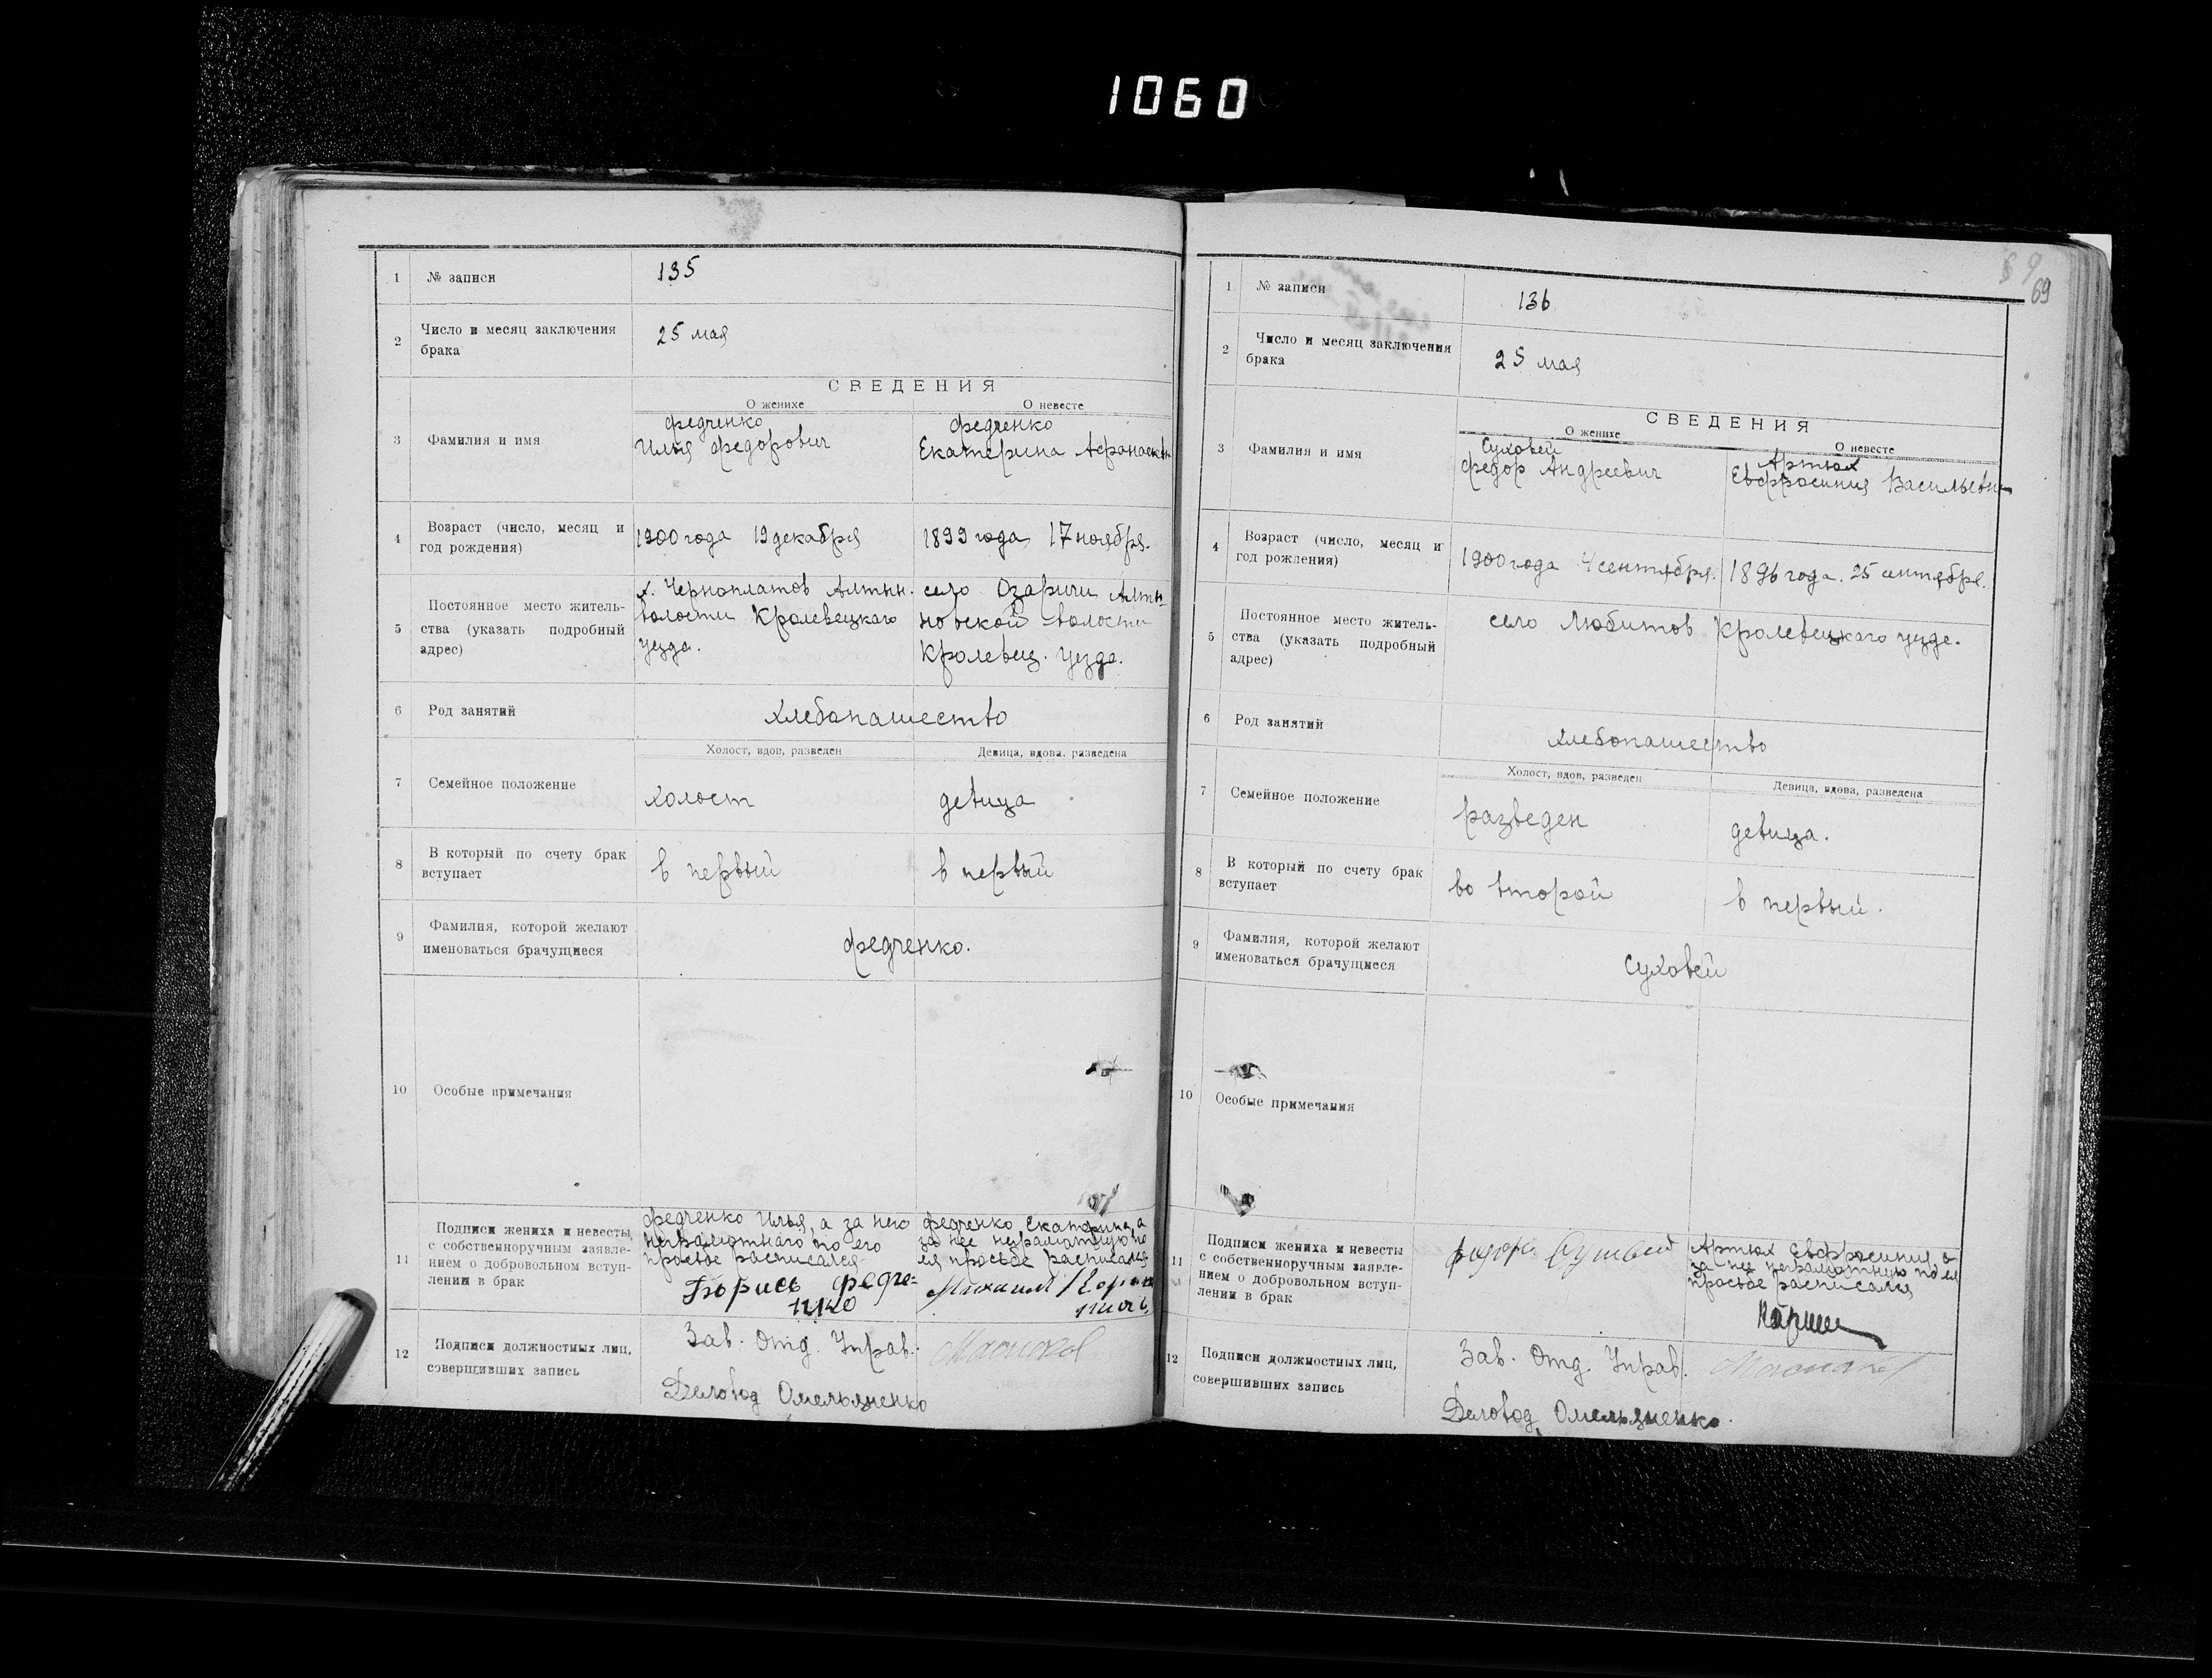 1060
1 № записи 135
2 Число и месяц заключения брака 25 мая
СВЕДЕНИЯ
О женихе О невесте
3 Фамилия и имя
Федченко Федченко
Илья Федорович Екатерина
4 Возраст (число, месяц и год рождения)
1900 года 19 декабря 1899 года 17 ноября.
5 Постоянное место жительства (указать подробный адрес)
х. Черноплатов Алтын. село Озаричи Алты-
волости Кролевецкаго новской волости
уезда. Кролевец. уезда.
6 Род занятий хлебопашество
Холост, вдов, разведен Девица, вдова, разведена
7 Семейное положение холост девица
8 В который по счету брак вступает в первый в первый
9 Фамилия, которой желают именоваться брачущиеся Федченко.
10 Особые примечания
11 Подписи жениха и невесты, с собственноручным заявлением о добровольном вступлении в брак
Федченко Илья, а за него Федченко Екатерина, а
неграмотнаго по его за нее неграмотную по
просьбе расписался ея просьбе расписался
Борисъ Федче= Михаил
нко
12 Подписи должностных лиц, совершивших запись
Зав. Отд. Управ.
Деловод Омельяненко
69
1 № записи 136
2 Число и месяц заключения брака 25 мая
СВЕДЕНИЯ
О женихе О невесте
3 Фамилия и имя
Суховей Артюх
Федор Андреевич Евфросиния Васильевна
4 Возраст (число, месяц и год рождения)
1900 года 4 сентября. 1896 года. 25 сентябре.
5 Постоянное место жительства (указать подробный адрес)
село Любитов Кролевецкаго уезде.
6 Род занятий хлебопашество
Холост, вдов, разведен Девица, вдова, разведена
7 Семейное положение разведен девица.
8 В который по счету брак вступает во второй в первый.
9 Фамилия, которой желают именоваться брачущиеся Суховей
10 Особые примечания
11 Подписи жениха и невесты с собственноручным заявлением о добровольном вступлении в брак
Артюх Евфросиния, а
за нее неграмотную по ея
просьбе расписался
12 Подписи должностных лиц, совершивших запись
Зав. Отд. Управ.
Деловод Омельяненко.